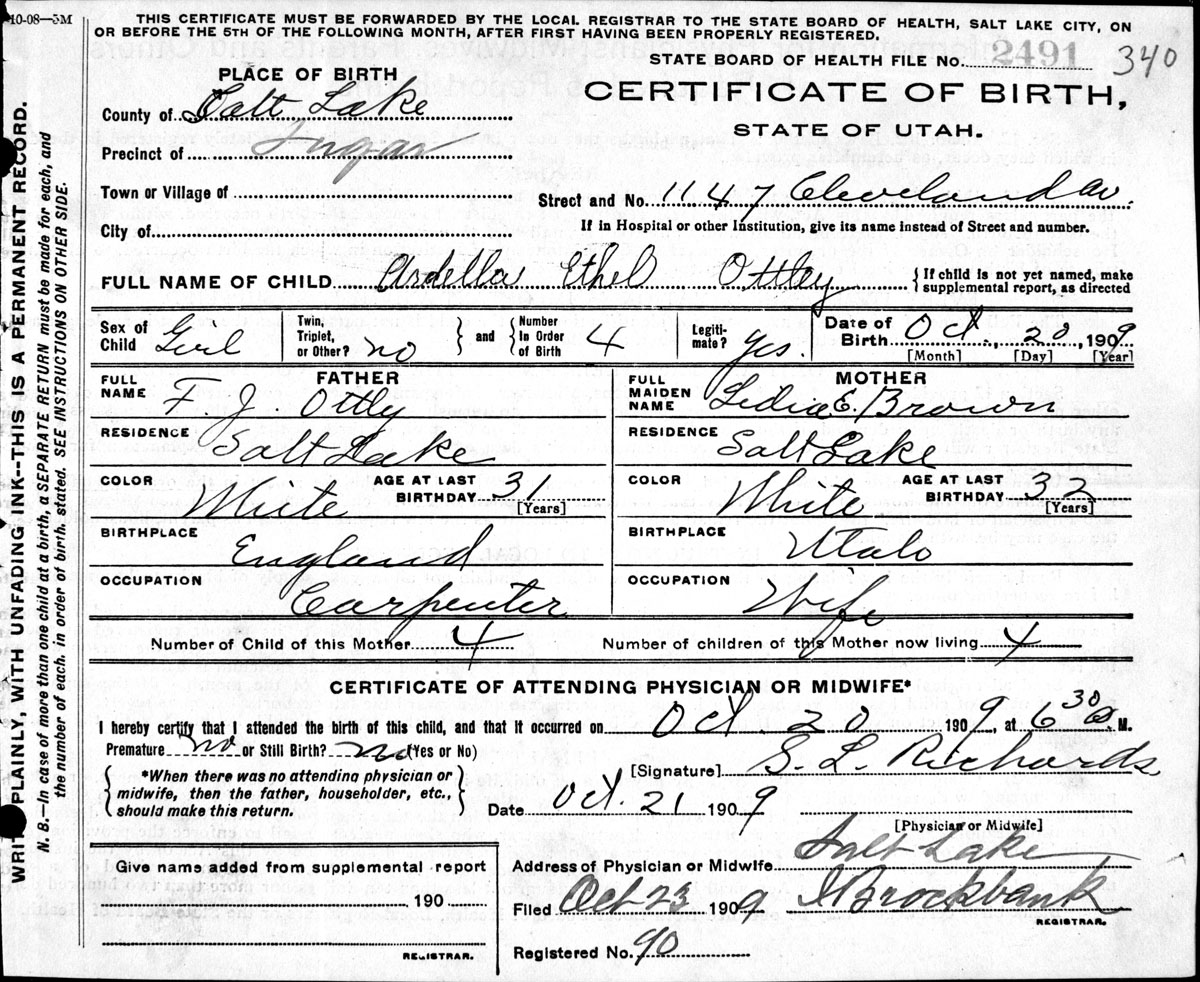 10-08—5M
THIS CERTIFICATE MUST BE FORWARDED BY THE LOCAL REGISTRAR TO THE STATE BOARD OF HEALTH, SALT LAKE CITY, ON
OR BEFORE THE 5TH OF THE FOLLOWING MONTH, AFTER FIRST HAVING BEEN PROPERLY REGISTERED.
STATE BOARD OF HEALTH FILE No. 2491 340
PLACE OF BIRTH
CERTIFICATE OF BIRTH,
STATE OF UTAH.
County of Salt Lake
Precinct of Sugar
Town or Village of
Street and No. 1147 Cleveland av.
City of
If in Hospital or other Institution, give its name instead of Street and number.
FULL NAME OF CHILD Ardella Ethel Ottley {If child is not yet named, make supplemental report, as directed
Sex of Child Girl Twin, Triplet, or Other? no } and { Number In Order of Birth 4 Legiti-mate? yes. Date of Birth Oct., 20, 1909
[Month] [Day] [Year]
FATHER
FULL NAME F. J. Ottly
MOTHER
FULL MAIDEN NAME Lidia E. Brown
RESIDENCE Salt Lake
RESIDENCE Salt Lake
COLOR White AGE AT LAST BIRTHDAY 31 [Years]
COLOR White AGE AT LAST BIRTHDAY 32 [Years]
BIRTHPLACE England
BIRTHPLACE Utah
OCCUPATION Carpenter
OCCUPATION Wife
Number of Child of this Mother 4 Number of children of this Mother now living 4
CERTIFICATE OF ATTENDING PHYSICIAN OR MIDWIFE*
I hereby certify that I attended the birth of this child, and that it occurred on Oct. 20 1909, at 6 30 M.
Premature no or Still Birth? no (Yes or No)
{*When there was no attending physician or midwife, then the father, householder, etc., should make this return.}
[Signature] S. L. Richards
Date Oct. 21 1909
[Physician or Midwife]
Give name added from supplemental report
190
REGISTRAR.
Address of Physician or Midwife Salt Lake
Filed Oct 23 1909 Brockbank
REGISTRAR.
Registered No. 90
WRITE PLAINLY, WITH UNFADING INK--THIS IS A PERMANENT RECORD.
N. B.—In case of more than one child at a birth, a SEPARATE RETURN must be made for each, and
the number of each, in order of birth, stated. SEE INSTRUCTIONS ON OTHER SIDE.